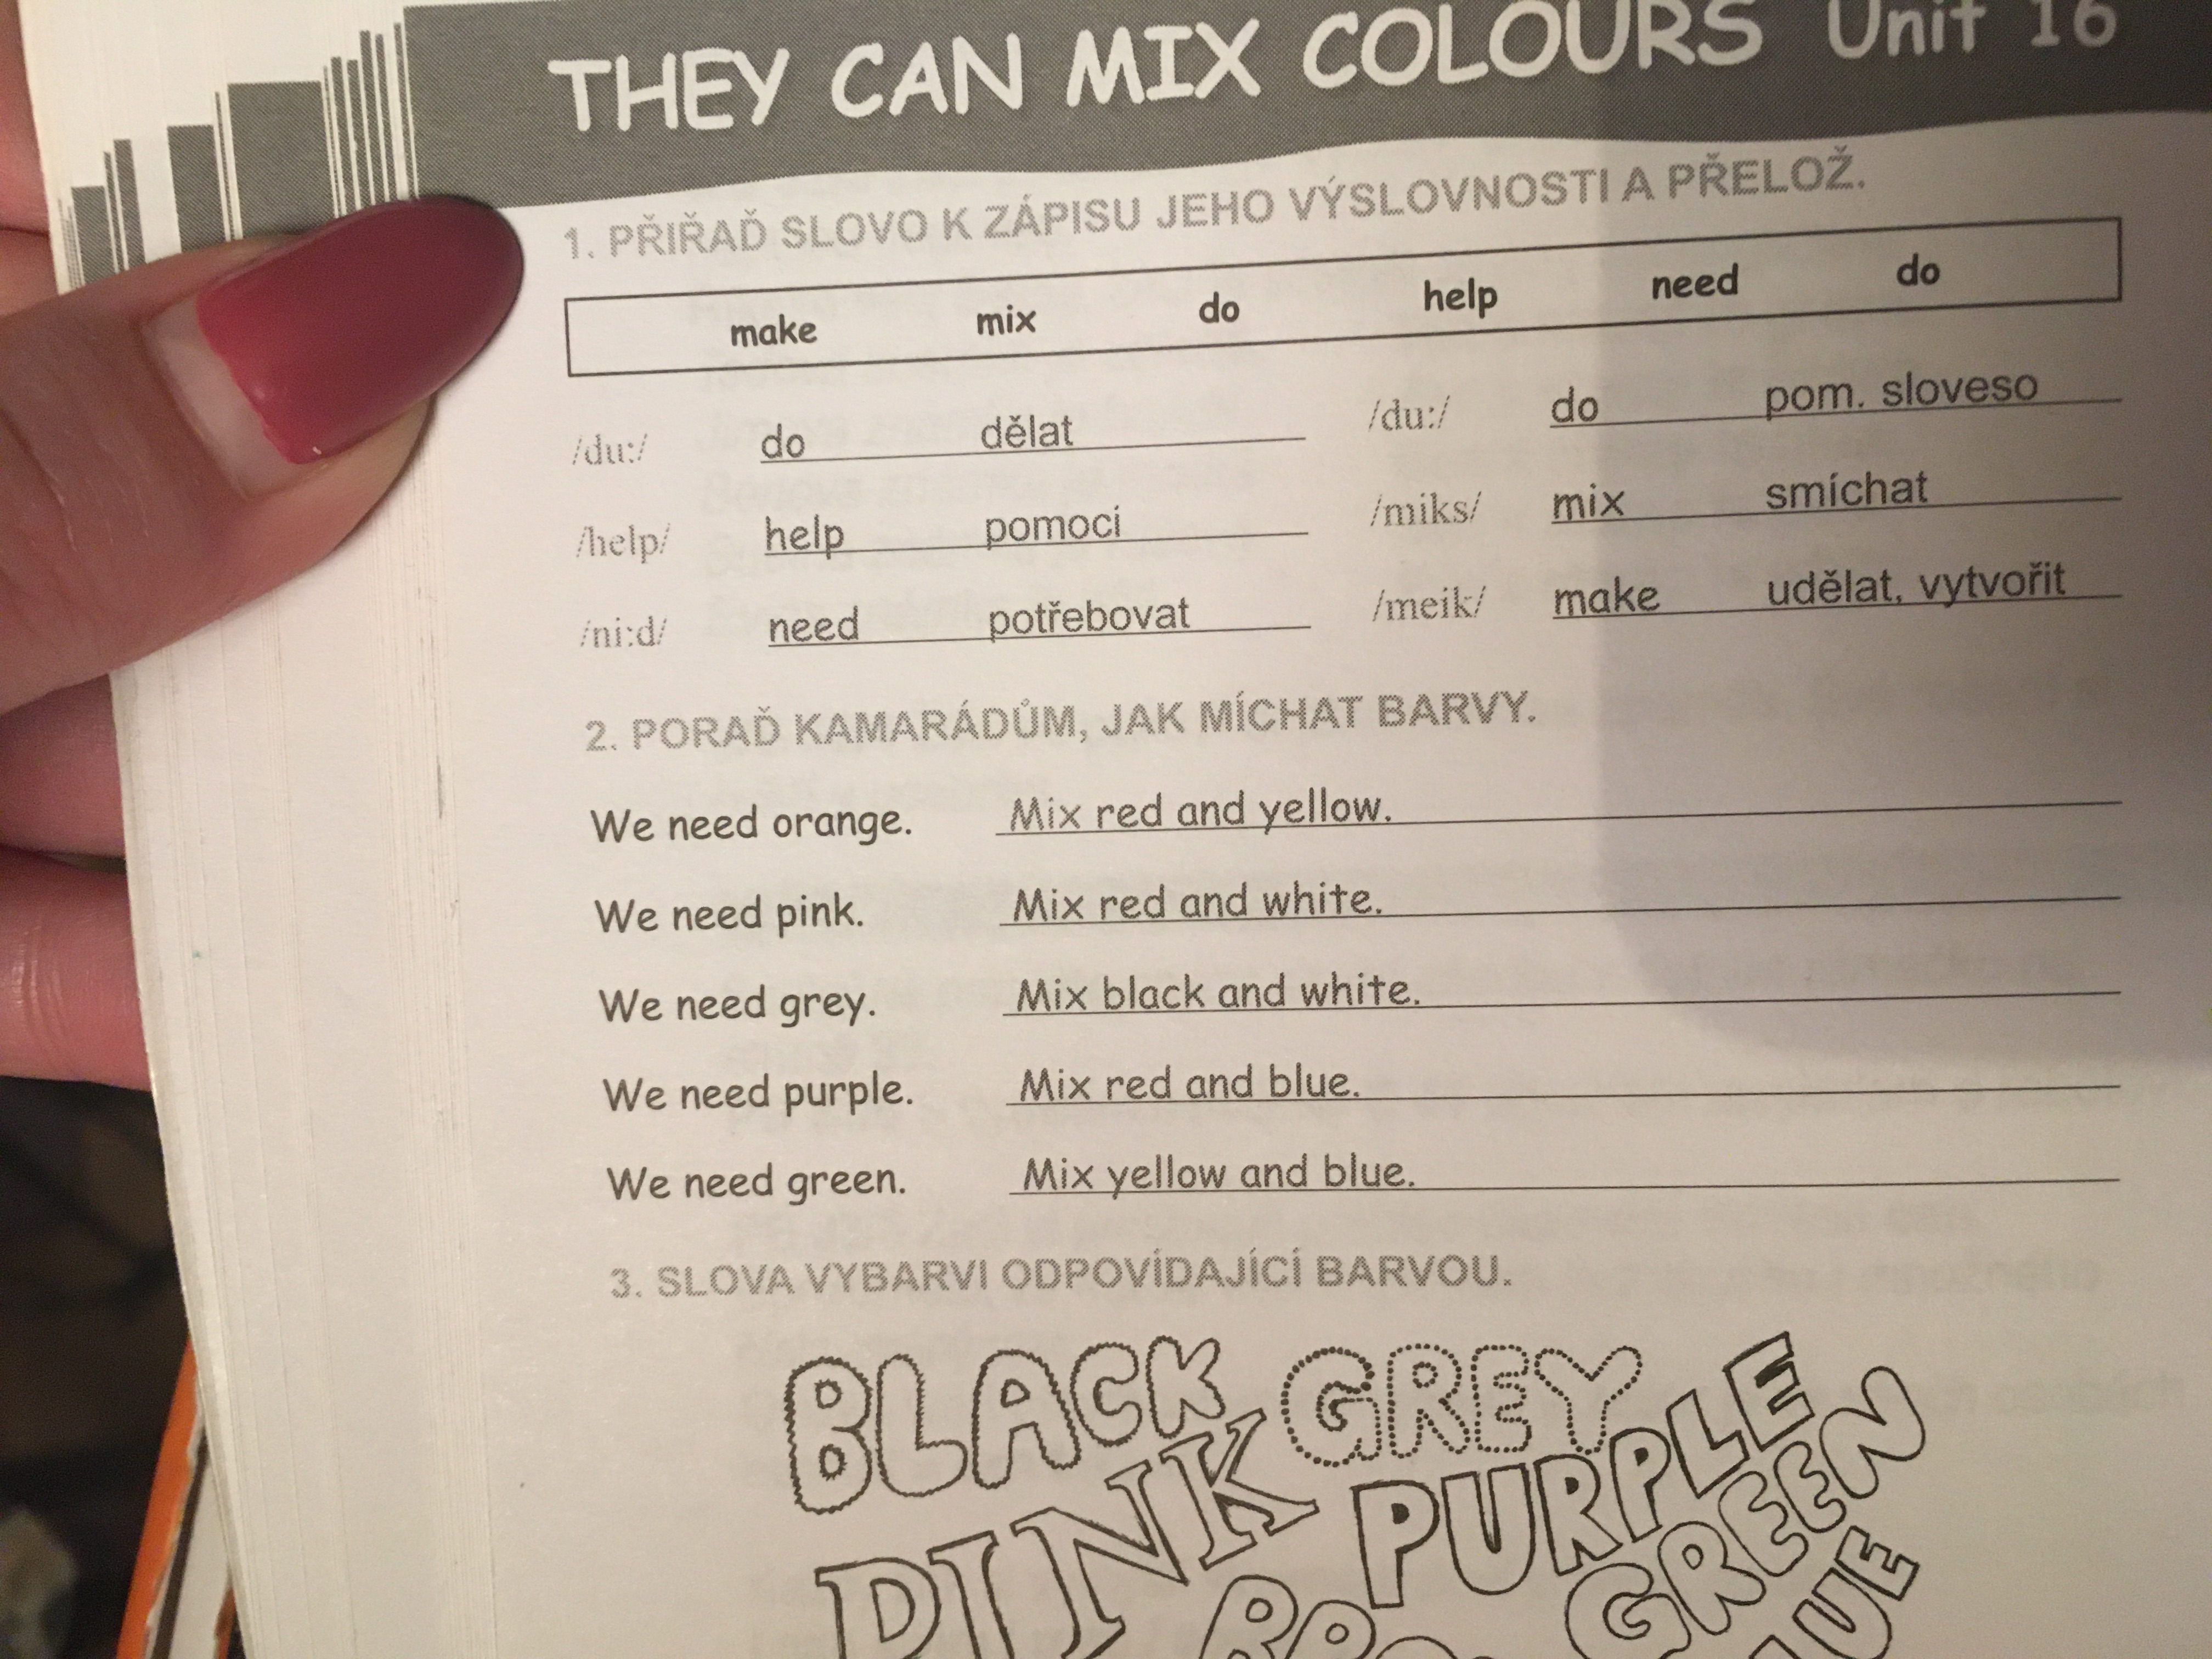 THEY CAN MIX COLOURS Unit 16
1. PŘIŘAĎ SLOVO K ZÁPISU JEHO VÝSLOVNOSTI A PŘELOŽ.
make mix do help need do
/du:/ do dělat /du:/ do pom. sloveso
/help/ help pomoci /miks/ mix smíchat
/ni:d/ need potřebovat /meik/ make udělat, vytvořit
2. PORAĎ KAMARÁDŮM, JAK MÍCHAT BARVY.
We need orange. Mix red and yellow.
We need pink. Mix red and white.
We need grey. Mix black and white.
We need purple. Mix red and blue.
We need green. Mix yellow and blue.
3. SLOVA VYBARVI ODPOVÍDAJÍCÍ BARVOU.
BLACK GREY PURPLE
PINK GREEN